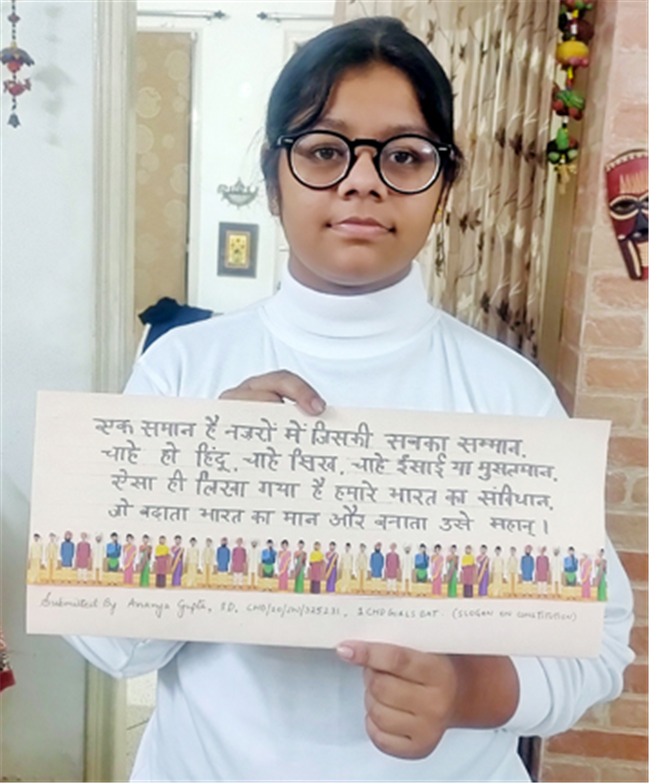 एक समान है नज़रों में जिसकी सबका सम्मान,
चाहे हो हिंदू, चाहे सिख, चाहे ईसाई या मुसलमान,
ऐसा ही लिखा गया है हमारे भारत का संविधान,
जो बढ़ाता भारत का मान और बनाता उसे महान् ।
Submitted By Ananya Gupta, SD, CHD/20/JW/325231, 1 CHD GIRLS BAT. (SLOGAN ON CONSTITUTION)